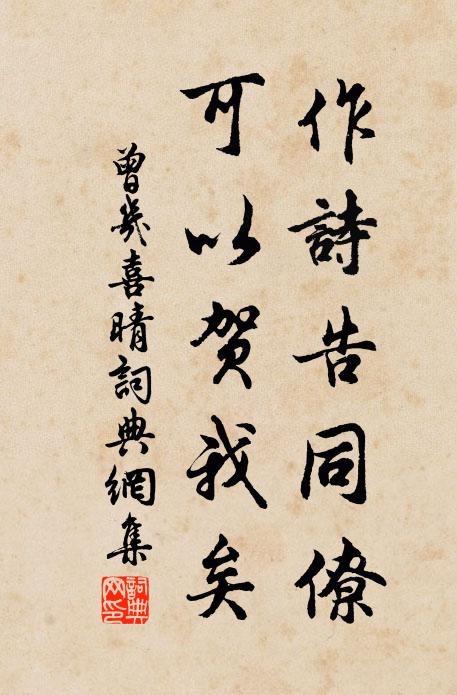 作詩告同僚
可以賀我矣
曾幾喜晴詞典網集
詞典網印